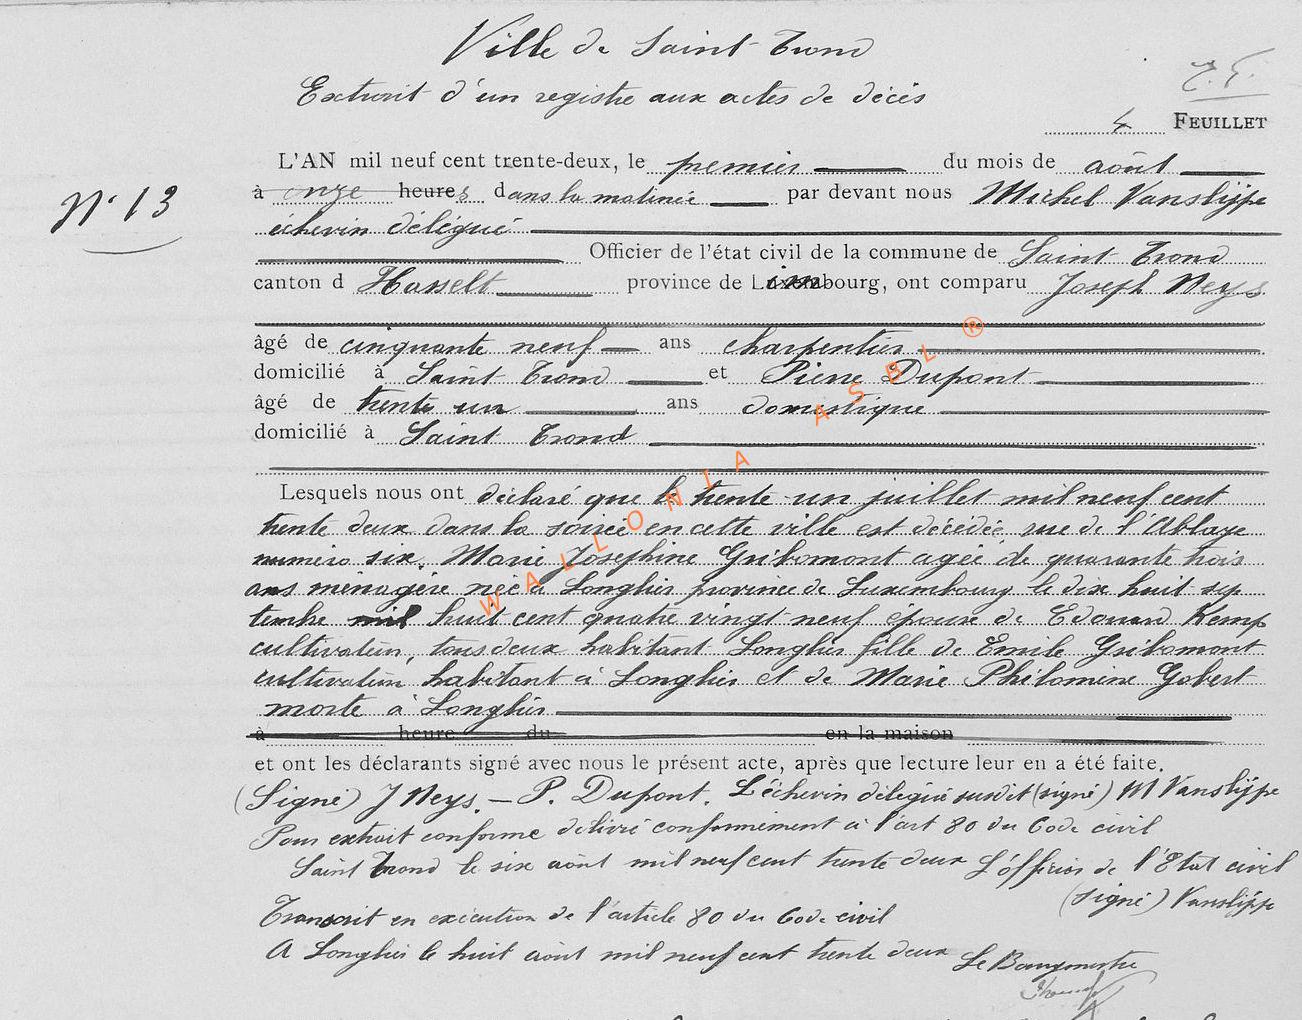 Ville de Saint-Trond
Extrait d'un registre aux actes de décès
4 FEUILLET
N° 13
L'AN mil neuf cent trente-deux, le premier du mois de août
à onze heures dans la matinée par devant nous Michel Vanslijpe
échevin délégué
Officier de l'état civil de la commune de Saint Trond
canton d Hasselt province de Limbourg, ont comparu Joseph Neys
âgé de cinquante neuf ans charpentier
domicilié à Saint Trond et Pierre Dupont
âgé de trente un ans domestique
domicilié à Saint Trond
Lesquels nous ont déclaré que le trente-un juillet mil neuf cent
trente deux dans la soirée en cette ville est décédée, rue de l'Abbaye
numéro six, Marie Joséphine Gribomont agée de quarante trois
ans ménagère née à Longlier province de Luxembourg le dix huit sep
tembre mil huit cent quatre vingt neuf épouse de Edouard Kemp
cultivateur, tous deux habitant Longlier fille de Emile Gribomont
cultivateur habitant à Longlier et de Marie Philomine Gobert
morte à Longlier
à heure du en la maison
et ont les déclarants signé avec nous le présent acte, après que lecture leur en a été faite.
(Signé) J Neys. – P. Dupont. L'échevin délégué susdit (signé) M Vanslijpe
Pour extrait conforme délivré conformément à l'art 80 du Code civil
Saint Trond le six août mil neuf cent trente deux L'officier de l'Etat civil
(signé) Vanslijpe
Transcrit en exécution de l'article 80 du Code civil
A Longlier le huit août mil neuf cent trente deux Le Bourgmestre
WALLONIA ASBL ®